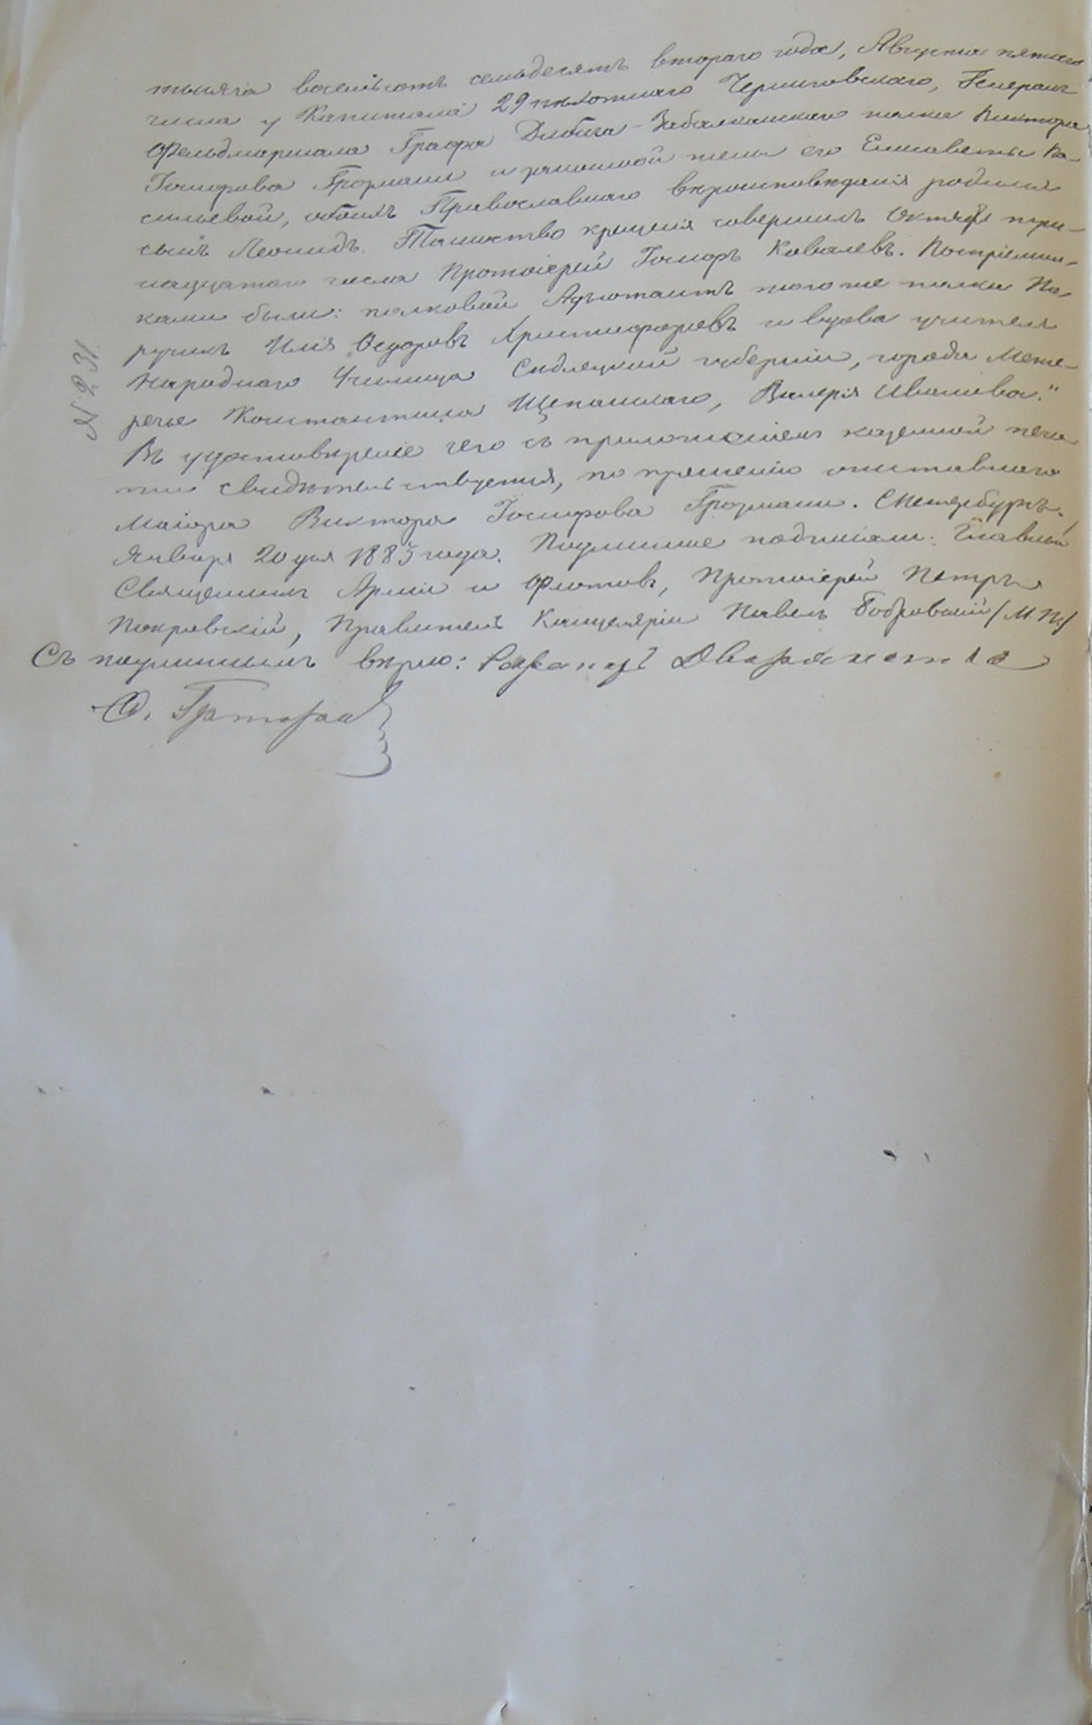 тысяча восемьсотъ семьдесятъ втораго года, Августа пятаго
числа у Капитана 29 пѣхотнаго Черниговскаго, Генералъ
Фельдмаршала Графа Дибича-Забалканскаго полка Виктора
Іосифова Грозмани и законной жены его Елисаветы Ва-
сильевой, обоихъ Православнаго вѣроисповѣданія родился
сынъ Леонидъ. Таинство крещенія совершилъ Октября три-
надцатаго числа Протоіерей Іосифъ Ковалевъ. Воспріемни-
ками были: полковой Адъютантъ того же полка По-
ручикъ Илія Ѳедоровъ Христофоровъ и вдова учителя
Народнаго Училища Сѣдлецкой губерніи, города Меже-
речье Константина Щепанскаго, Валерія Иванова."
Въ удостовѣреніе чего съ приложеніемъ казенной печа-
ти свидѣтельствуется, по прошенію отставнаго
Маіора Виктора Іосифова Грозмани. С.Петербургъ.
Января 20 дня 1883 года. Подлинное подписали: Главный
Священникъ Арміи и Флотовъ, Протоіерей Петръ
Покровскій, Правитель Канцеляріи Павелъ Бобровскій (М.П.)
Съ подлиннымъ вѣрно: Дворянства
№ 231.